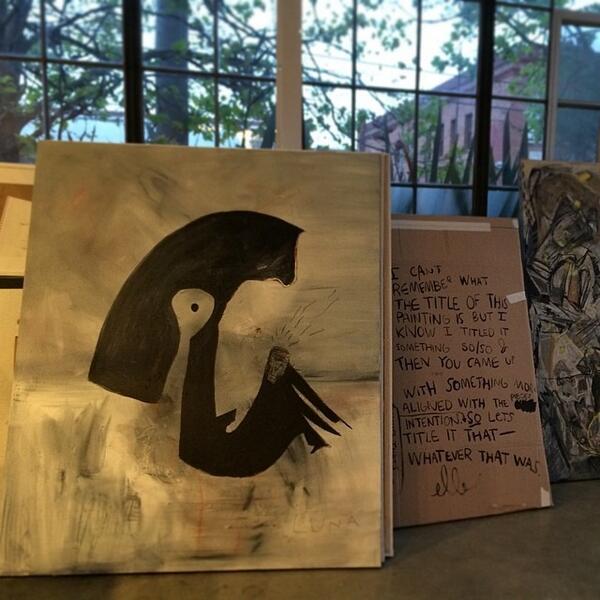 I CAN'T
REMEMBER WHAT
THE TITLE OF THIS
PAINTING IS BUT I
KNOW I TITLED IT
SOMETHING SO/SO &
THEN YOU CAME UP
WITH SOMETHING MORE
ALIGNED WITH THE PIECES
INTENTION. SO LETS
TITLE IT THAT—
WHATEVER THAT WAS
LUNA